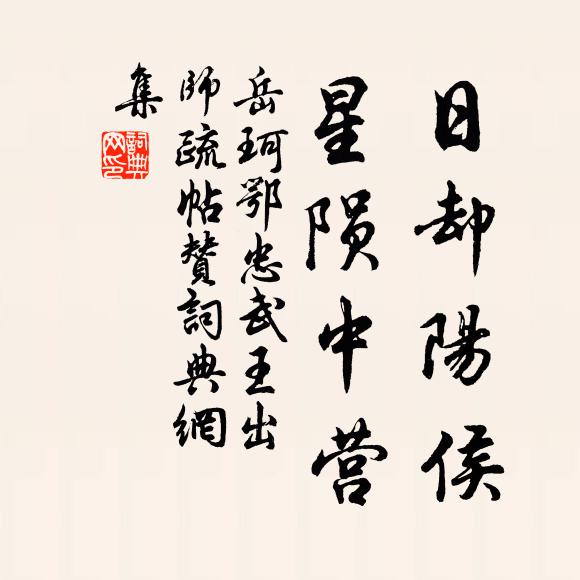 日却陽侯
星陨中营
岳珂鄂忠武王出
師疏帖贊詞典網
集
詞典
网印